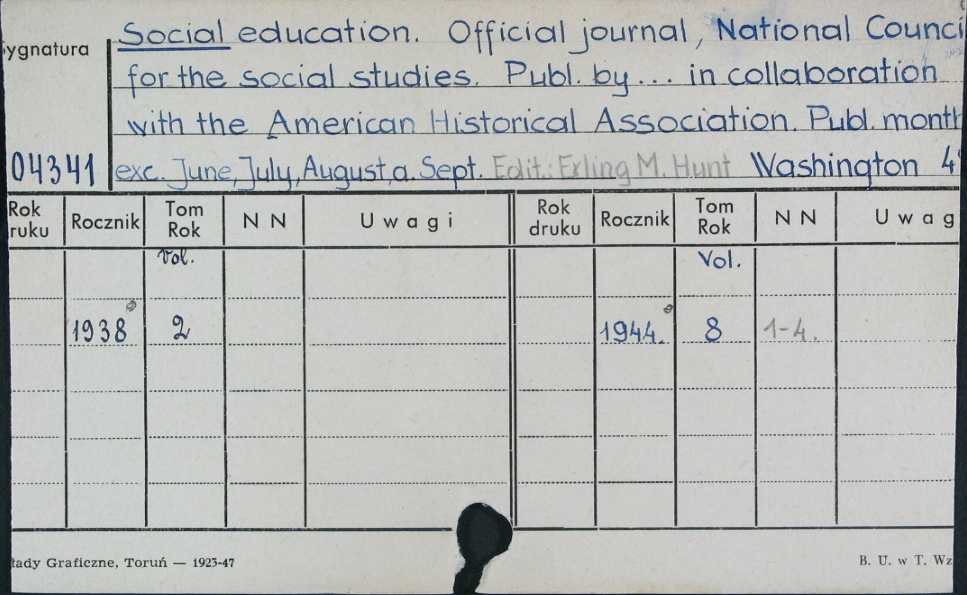 Social education. Official journal, National Counci
ygnatura
for the social studies. Publ. by... in collaboration
with the American Historical Association. Publ. month
04341
exc. June, July, August, a. Sept. Edit.: Erling M. Hunt Washington 4
Rok ruku Rocznik Tom Rok N N Uwagi Rok druku Rocznik Tom Rok N N Uwag
Vol. Vol.
1938 2 1944. 8 1-4.
łady Graficzne, Toruń — 1923-47 B. U. w T. Wz